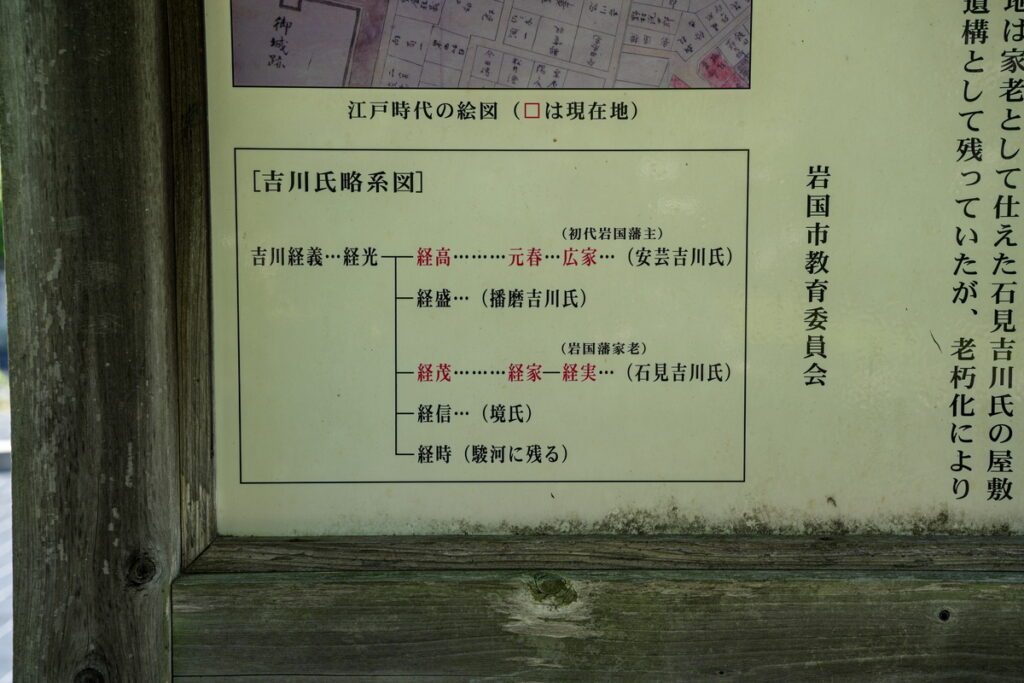 地は家老として仕えた石見吉川氏の屋敷
遺構として残っていたが、老朽化により
岩国市教育委員会
御城跡
江戸時代の絵図（□は現在地）
［吉川氏略系図］
（初代岩国藩主）
吉川経義…経光 経高………元春…広家…（安芸吉川氏）
経盛…（播磨吉川氏）
（岩国藩家老）
経茂………経家―経実…（石見吉川氏）
経信…（境氏）
経時（駿河に残る）